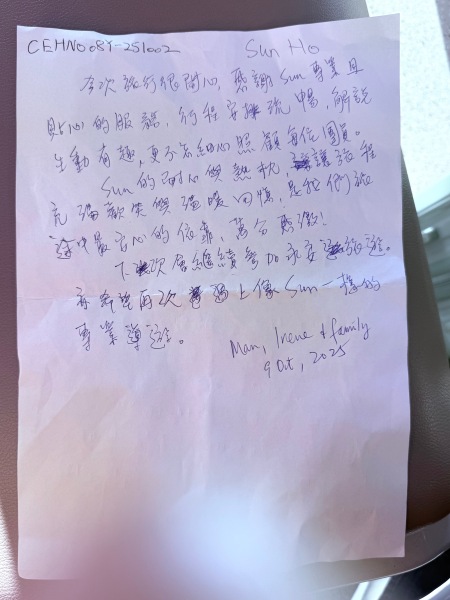 CEHN08Y-251002
Sun Ho
今次旅行很開心, 感謝 Sun 專業且
貼心的服務, 行程安排流暢, 解說
生動有趣, 更不忘細心照顧每位團員。
Sun 的耐心與熱忱, 讓旅程
充滿歡笑與溫暖回憶, 是我們旅
途中最安心的依靠, 萬分感激!
下次會繼續參加永安旅遊。
再希望再次遇上像 Sun 一樣的
專業導遊。
Man, Irene & family
9 Oct, 2025